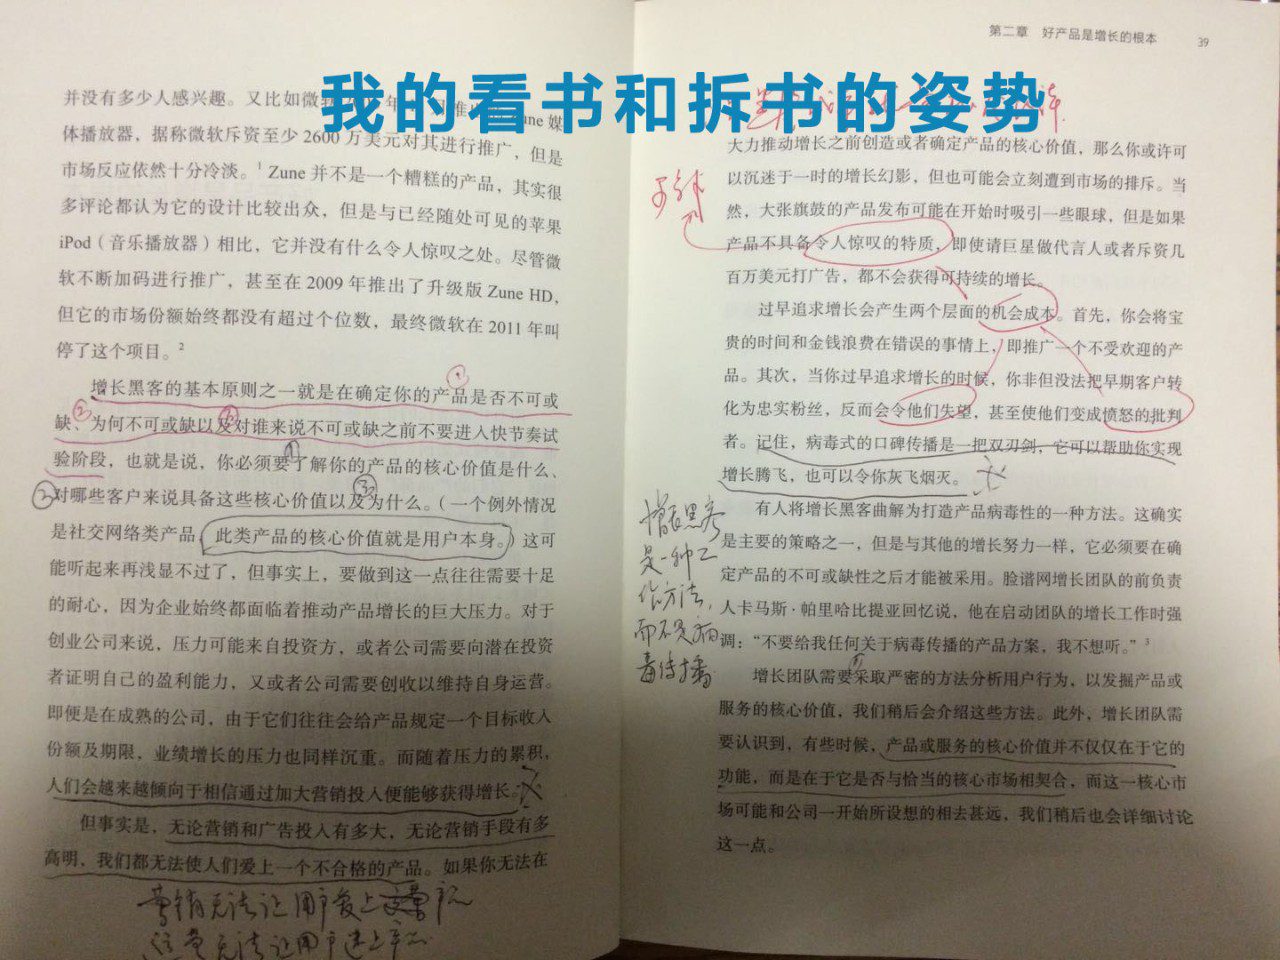 我的看书和拆书的姿势
并没有多少人感兴趣。又比如微软 年 推 Zune 媒
体播放器，据称微软斥资至少 2600 万美元对其进行推广，但是
市场反应依然十分冷淡。1 Zune 并不是一个糟糕的产品，其实很
多评论都认为它的设计比较出众，但是与已经随处可见的苹果
iPod（音乐播放器）相比，它并没有什么令人惊叹之处。尽管微
软不断加码进行推广，甚至在 2009 年推出了升级版 Zune HD，
但它的市场份额始终都没有超过个位数，最终微软在 2011 年叫
停了这个项目。2
①
增长黑客的基本原则之一就是在确定你的产品是否不可或
② ③
缺、为何不可或缺以及对谁来说不可或缺之前不要进入快节奏试
验阶段，也就是说，你必须要了解你的产品的核心价值是什么、
① ② ③
对哪些客户来说具备这些核心价值以及为什么。（一个例外情况
是社交网络类产品，此类产品的核心价值就是用户本身。）这可
能听起来再浅显不过了，但事实上，要做到这一点往往需要十足
的耐心，因为企业始终都面临着推动产品增长的巨大压力。对于
创业公司来说，压力可能来自投资方，或者公司需要向潜在投资
者证明自己的盈利能力，又或者公司需要创收以维持自身运营。
即便是在成熟的公司，由于它们往往会给产品规定一个目标收入
份额及期限，业绩增长的压力也同样沉重。而随着压力的累积，
人们会越来越倾向于相信通过加大营销投入便能够获得增长。
但事实是，无论营销和广告投入有多大，无论营销手段有多
高明，我们都无法使人们爱上一个不合格的产品。如果你无法在
营销无法让用户爱上 产品
运营无法让用户迷上产品
第二章 好产品是增长的根本 39
大力推动增长之前创造或者确定产品的核心价值，那么你或许可
以沉迷于一时的增长幻影，但也可能会立刻遭到市场的排斥。当
然，大张旗鼓的产品发布可能在开始时吸引一些眼球，但是如果
产品不具备令人惊叹的特质，即使请巨星做代言人或者斥资几
百万美元打广告，都不会获得可持续的增长。
过早追求增长会产生两个层面的机会成本。首先，你会将宝
贵的时间和金钱浪费在错误的事情上，即推广一个不受欢迎的产
品。其次，当你过早追求增长的时候，你非但没法把早期客户转
化为忠实粉丝，反而会令他们失望，甚至使他们变成愤怒的批判
者。记住，病毒式的口碑传播是一把双刃剑，它可以帮助你实现
增长腾飞，也可以令你灰飞烟灭。
增长黑客
是一种工
作方法，
而不是病
毒传播
有人将增长黑客曲解为打造产品病毒性的一种方法。这确实
是主要的策略之一，但是与其他的增长努力一样，它必须要在确
定产品的不可或缺性之后才能被采用。脸谱网增长团队的前负责
人卡马斯·帕里哈比提亚回忆说，他在启动团队的增长工作时强
调：“不要给我任何关于病毒传播的产品方案，我不想听。”3
增长团队需要采取严密的方法分析用户行为，以发掘产品或
服务的核心价值，我们稍后会介绍这些方法。此外，增长团队需
要认识到，有些时候，产品或服务的核心价值并不仅仅在于它的
功能，而是在于它是否与恰当的核心市场相契合，而这一核心市
场可能和公司一开始所设想的相去甚远，我们稍后也会详细讨论
这一点。